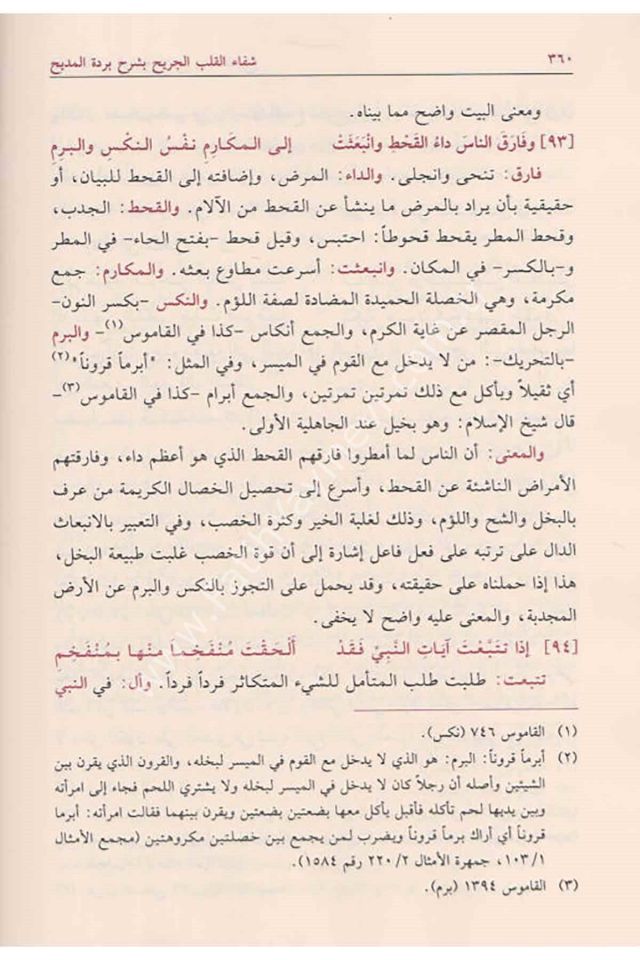 ٣٦٠ شفاء القلب الجريح بشرح بردة المديح
ومعنى البيت واضح مما بيناه.
[٩٣] وفَارَقَ الناسَ داءُ القَحْطِ وانْبَعَثَتْ إلى المكَارِمِ نفْسُ النكْسِ والبرمِ
فارق: تنحى وانجلى. والداء: المرض، وإضافته إلى القحط للبيان، أو
حقيقية بأن يراد بالمرض ما ينشأ عن القحط من الآلام. والقحط: الجدب،
وقحط المطر يقحط قحوطاً: احتبس، وقيل قحط -بفتح الحاء- في المطر
و-بالكسر- في المكان. وانبعثت: أسرعت مطاوع بعثه. والمكارم: جمع
مكرمة، وهي الخصلة الحميدة المضادة لصفة اللؤم. والنكس -بكسر النون-
الرجل المقصر عن غاية الكرم، والجمع أنكاس -كذا في القاموس(١)- والبرم
-بالتحريك-: من لا يدخل مع القوم في الميسر، وفي المثل: "أبرماً قروناً"(٢)
أي ثقيلاً ويأكل مع ذلك تمرتين تمرتين، والجمع أبرام -كذا في القاموس(٣)-
قال شيخ الإسلام: وهو بخيل عند الجاهلية الأولى.
والمعنى: أن الناس لما أمطروا فارقهم القحط الذي هو أعظم داء، وفارقتهم
الأمراض الناشئة عن القحط، وأسرع إلى تحصيل الخصال الكريمة من عرف
بالبخل والشح واللؤم، وذلك لغلبة الخير وكثرة الخصب، وفي التعبير بالانبعاث
الدال على ترتبه على فعل فاعل إشارة إلى أن قوة الخصب غلبت طبيعة البخل،
هذا إذا حملناه على حقيقته، وقد يحمل على التجوز بالنكس والبرم عن الأرض
المجدبة، والمعنى عليه واضح لا يخفى.
[٩٤] إذا تتَبَّعْتَ آيَاتِ النَّبِيِّ فَقَدْ أَلْحَقْتَ مُنْفَخِماً مِنْها بِمُنْفَخِمِ
تتبعت: طلبت طلب المتأمل للشيء المتكاثر فرداً فرداً. وأل: في النبي
(١) القاموس ٧٤٦ (نكس).
(٢) أبرماً قروناً: البرم: هو الذي لا يدخل مع القوم في الميسر لبخله، والقرون الذي يقرن بين
الشيئين وأصله أن رجلاً كان لا يدخل في الميسر لبخله ولا يشتري اللحم فجاء إلى امرأته
وبين يديها لحم تأكله فأقبل يأكل معها بضعتين بضعتين ويقرن بينهما فقالت امرأته: أبرما
قروناً أي أراك برماً قروناً ويضرب لمن يجمع بين خصلتين مكروهتين (مجمع الأمثال
١٠٣/١، جمهرة الأمثال ٢٢٠/٢ رقم ١٥٨٤).
(٣) القاموس ١٣٩٤ (برم).